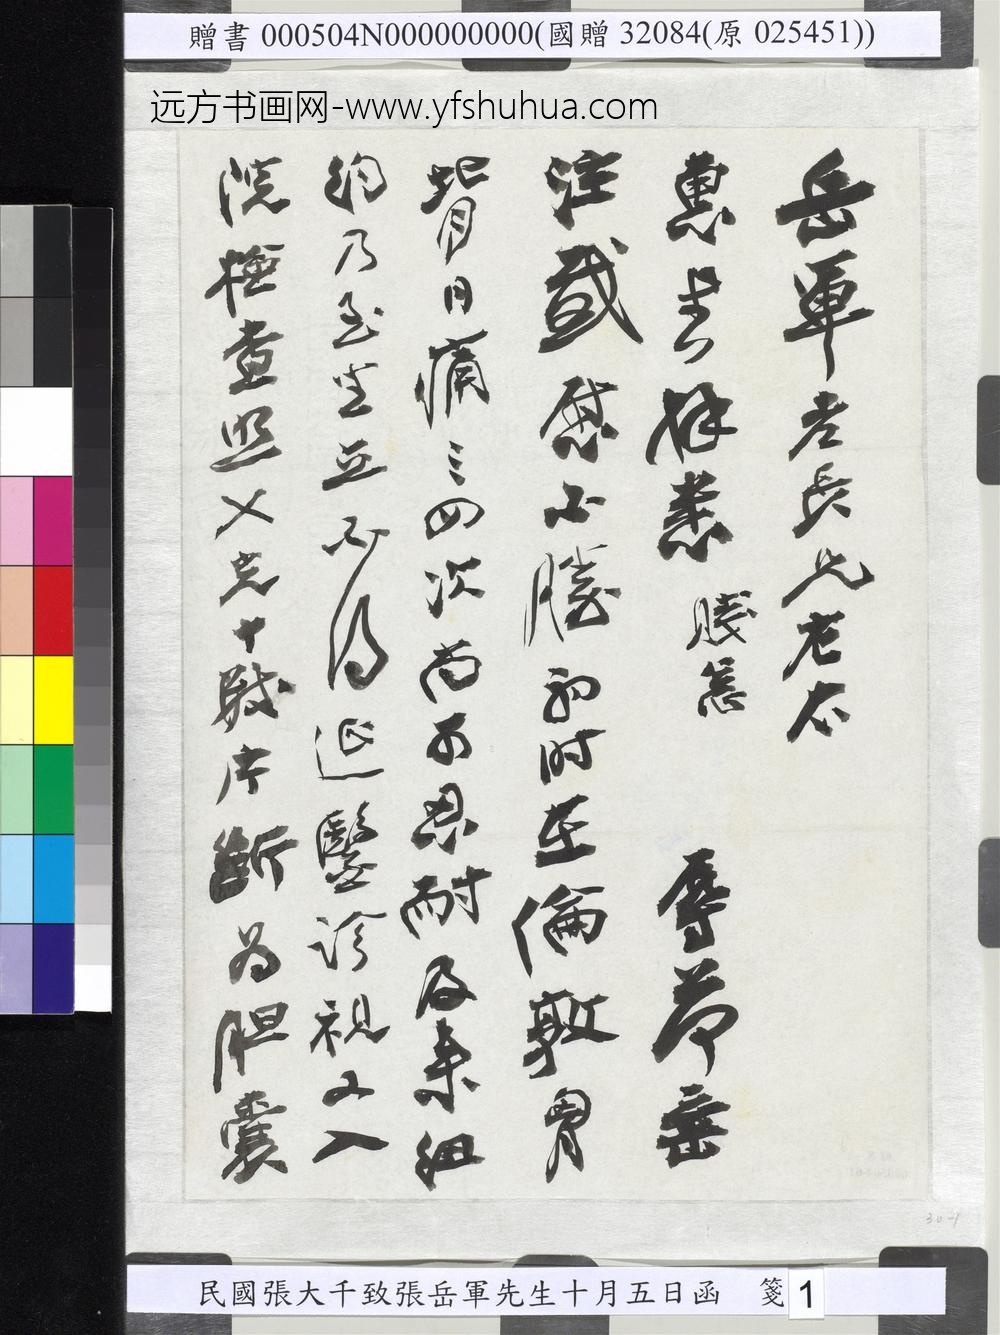 贈書 000504N000000000(國贈 32084(原 025451))
远方书画网-www.yfshuhua.com
岳軍老長兄左右
惠書拜悉賤恙辱荷垂
注感慰不勝初時在倫敦胃
背日痛三四次尚可忍耐及來紐
約乃至坐立不得延醫診視又入
院檢查照乂光十數片斷為胆囊
30-1
民國張大千致張岳軍先生十月五日函 箋 1